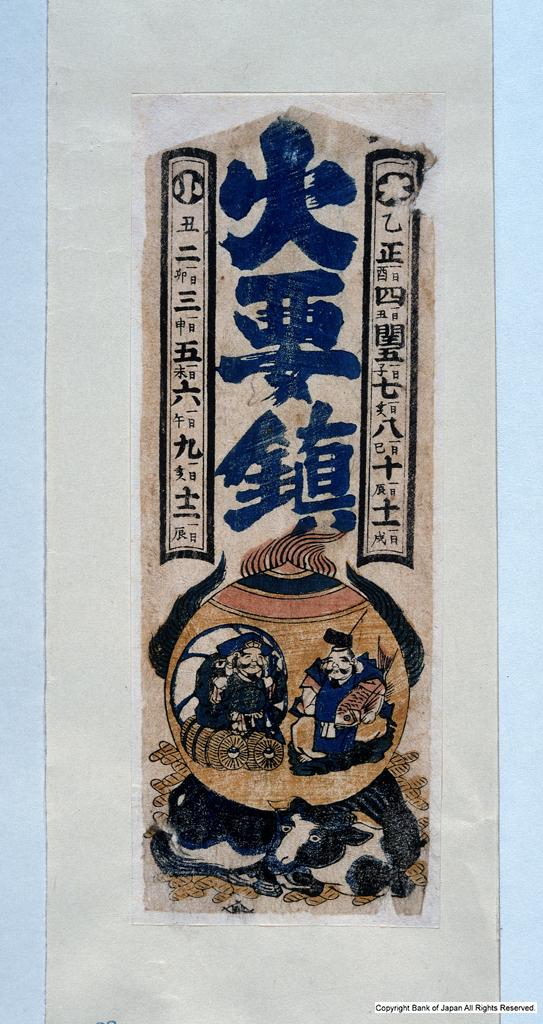 大 乙 正 酉一日 四 丑一日 閏五 子一日 七 亥一日 八 巳一日 十 辰一日 十一 戌一日
火要鎮
小 丑 二 卯一日 三 申一日 五 未一日 六 午一日 九 亥一日 十二 辰一日
Copyright Bank of Japan All Rights Reserved.